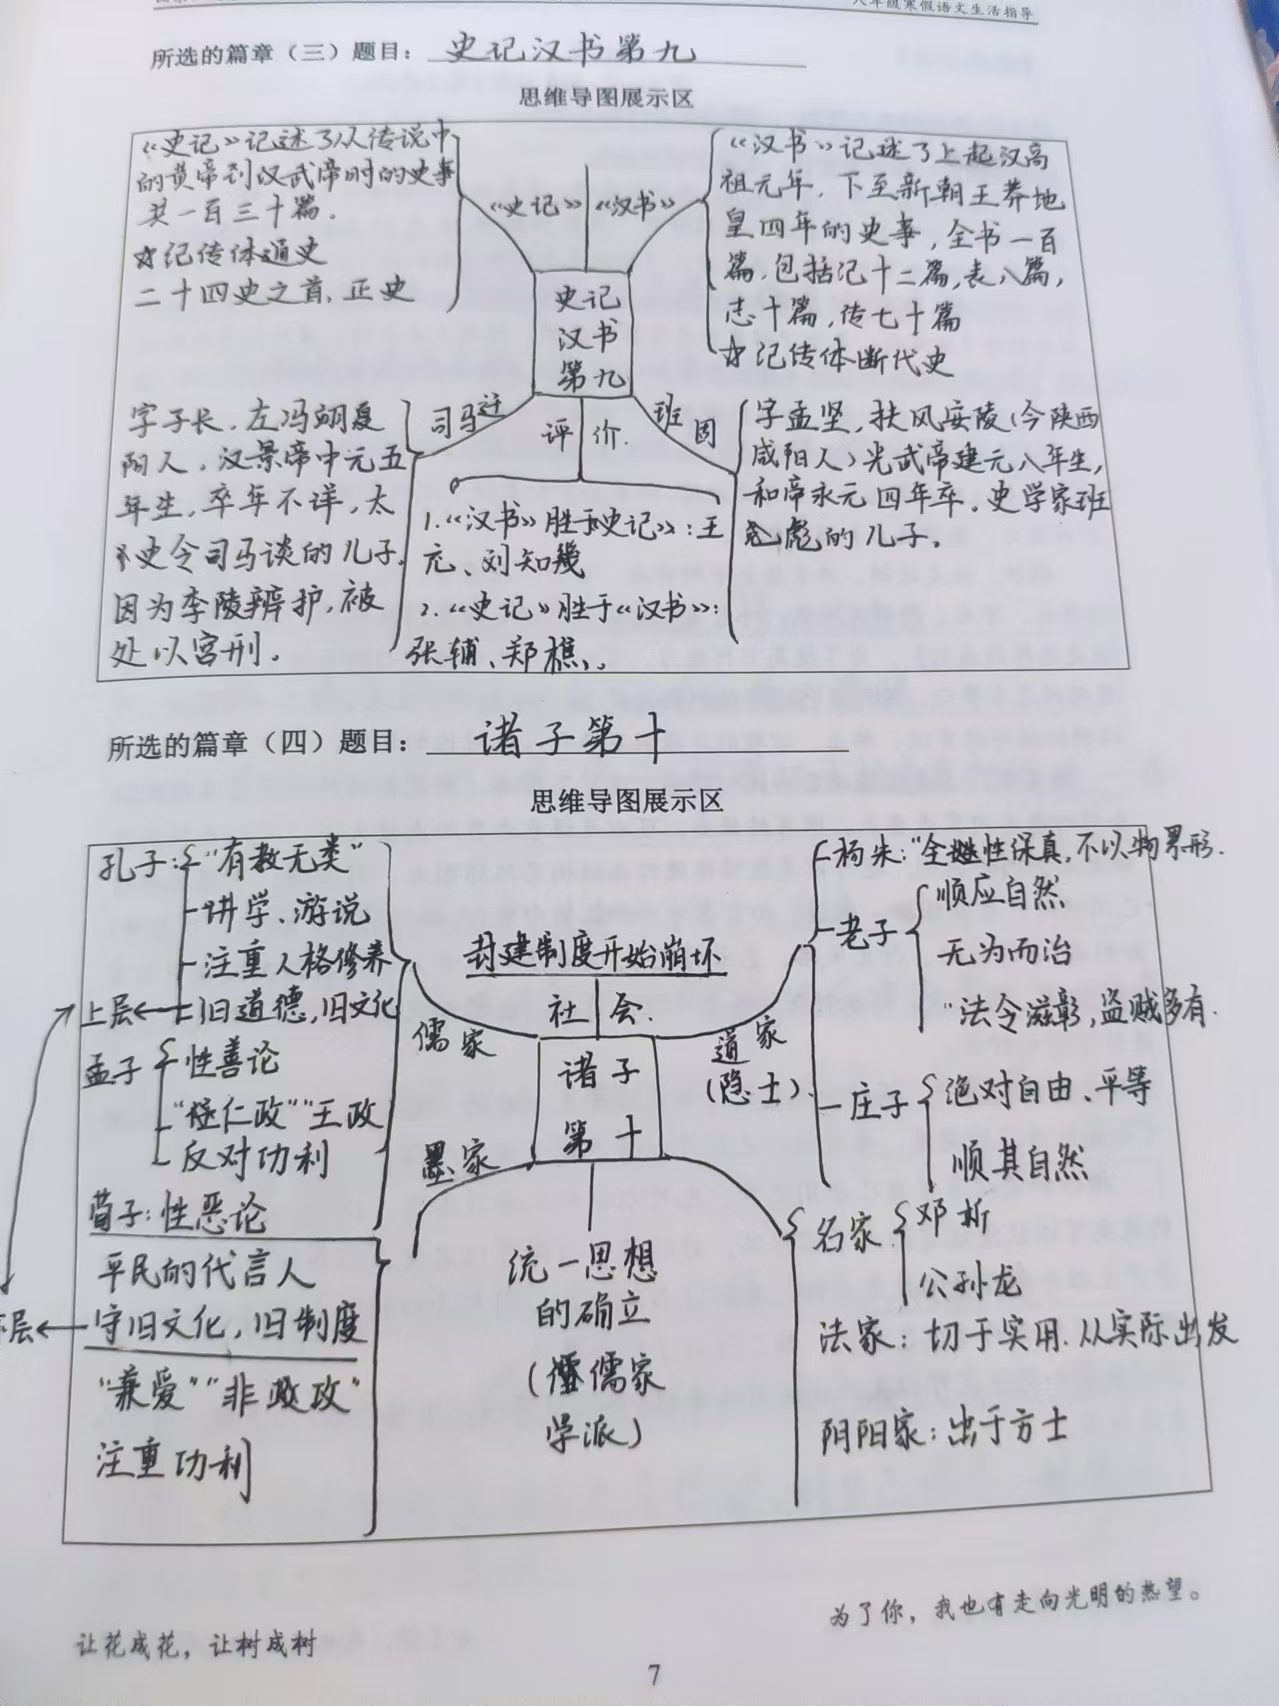 八年级寒假语文生活指导
所选的篇章（三）题目：史记汉书第九
思维导图展示区
《史记》记述了从传说中
的黄帝到汉武帝时的史事
共一百三十篇.
☆记传体通史
二十四史之首,正史
《史记》
《汉书》
《汉书》记述了上起汉高
祖元年,下至新朝王莽地
皇四年的史事,全书一百
篇,包括记十二篇,表八篇,
志十篇,传七十篇
☆记传体断代史
史记
汉书
第九
司马迁
字子长,左冯翊夏
阳人,汉景帝中元五
年生,卒年不详,太
史令司马谈的儿子,
因为李陵辨护,被
处以宫刑。
评价.
1.《汉书》胜于《史记》:王
充、刘知幾
2.《史记》胜于《汉书》:
张辅、郑樵、.
班固
字孟坚,扶风安陵(今陕西
咸阳人)光武帝建元八年生,
和帝永元四年卒,史学家班
彪的儿子.
所选的篇章（四）题目：诸子第十
思维导图展示区
孔子:“有教无类”
讲学、游说
注重人格修养
上层←旧道德,旧文化
孟子 性善论
“仁政”“王政
反对功利
荀子:性恶论
儒家
封建制度开始崩坏
社会.
诸子
第十
道家
(隐士).
杨朱:“全性保真,不以物累形.
老子 顺应自然
无为而治
“法令滋彰,盗贼多有.
庄子 绝对自由、平等
顺其自然
墨家
平民的代言人
层←守旧文化,旧制度
“兼爱”“非攻”
注重功利
统一思想
的确立
(儒家
学派)
名家 邓析
公孙龙
法家:切于实用.从实际出发
阴阳家:出于方士
为了你，我也有走向光明的热望。
让花成花，让树成树
7